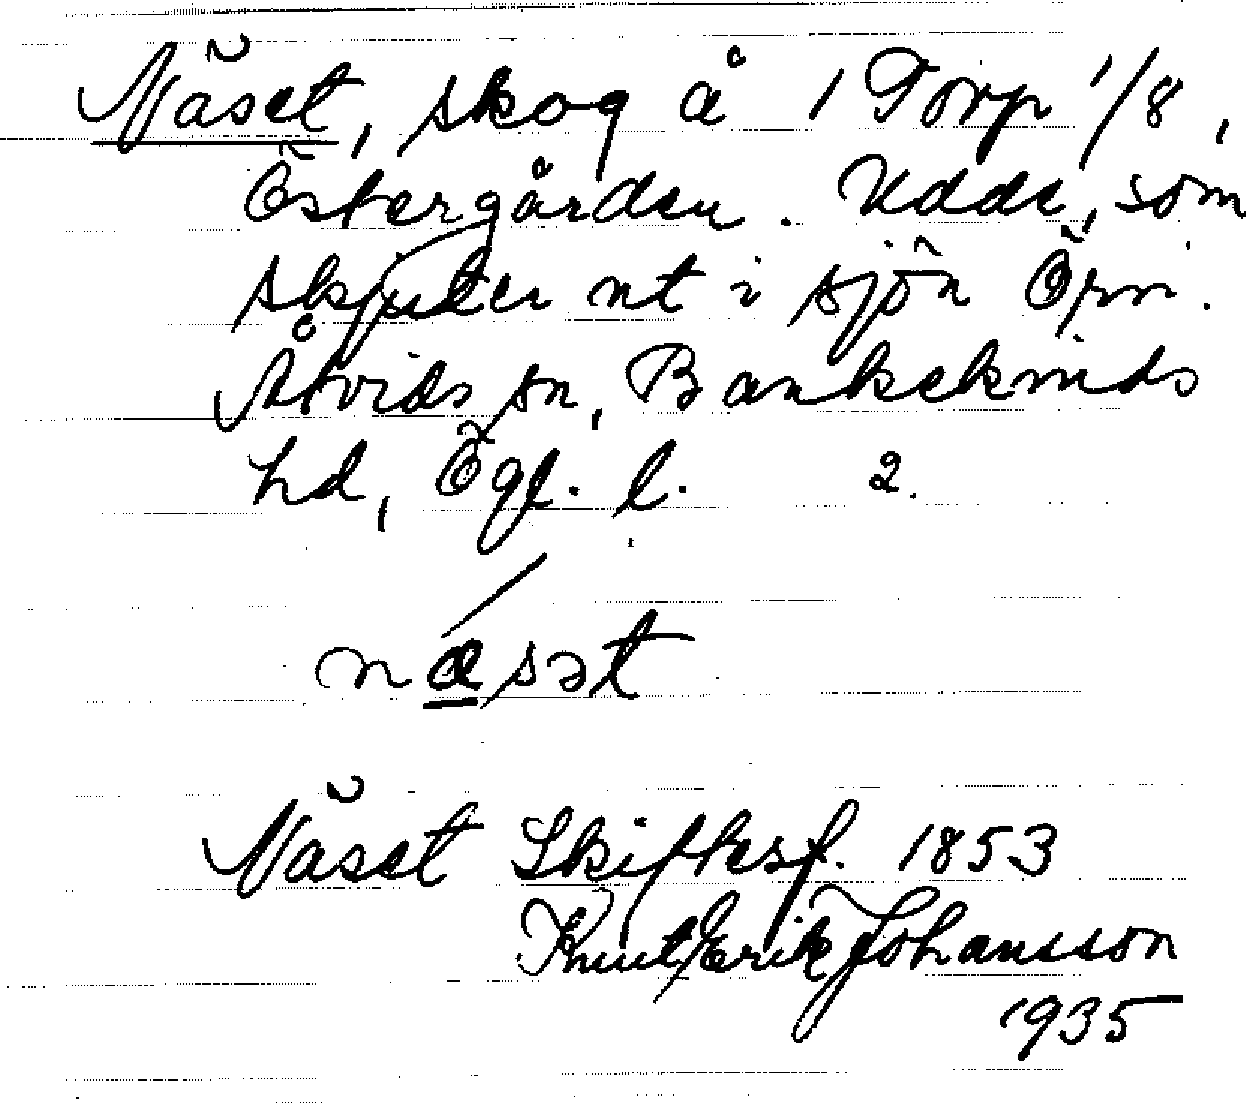 Näset, skog å 1 Torp 1/8,
Östergården. Udde, som
skjuter ut i sjön Örn.
Åtvids sn, Bankekinds
hd, Ögl. l. 2.
næsət
Näset Skiftesf. 1853
Knut Erik Johansson
1935